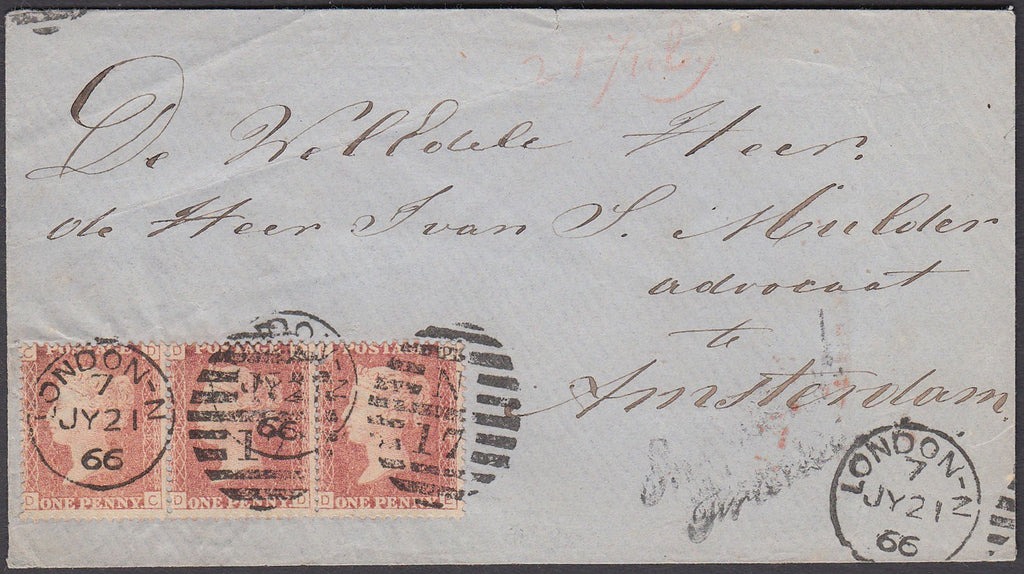 21 July
De WelEdele Heer.
de Heer J van S. Mulder
advocaat
te
Amsterdam
LONDON-N
7
JY 21
66
N
17
ONE PENNY.
ONE PENNY.
ONE PENNY.
D C
LONDON-N
7
JY 21
66